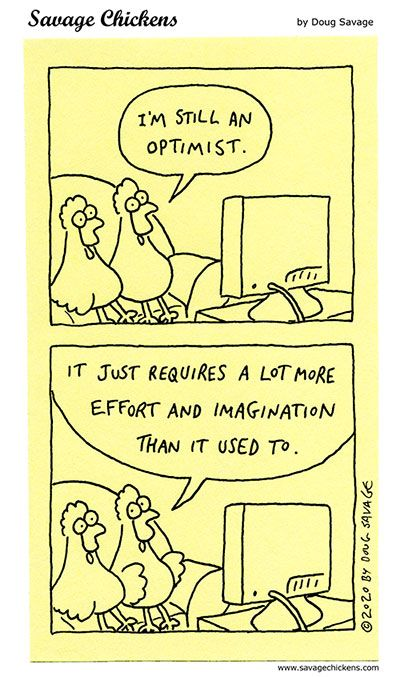 Savage Chickens
by Doug Savage
I'M STILL AN
OPTIMIST.
IT JUST REQUIRES A LOT MORE
EFFORT AND IMAGINATION
THAN IT USED TO.
©2020 BY DOUG SAVAGE
www.savagechickens.com